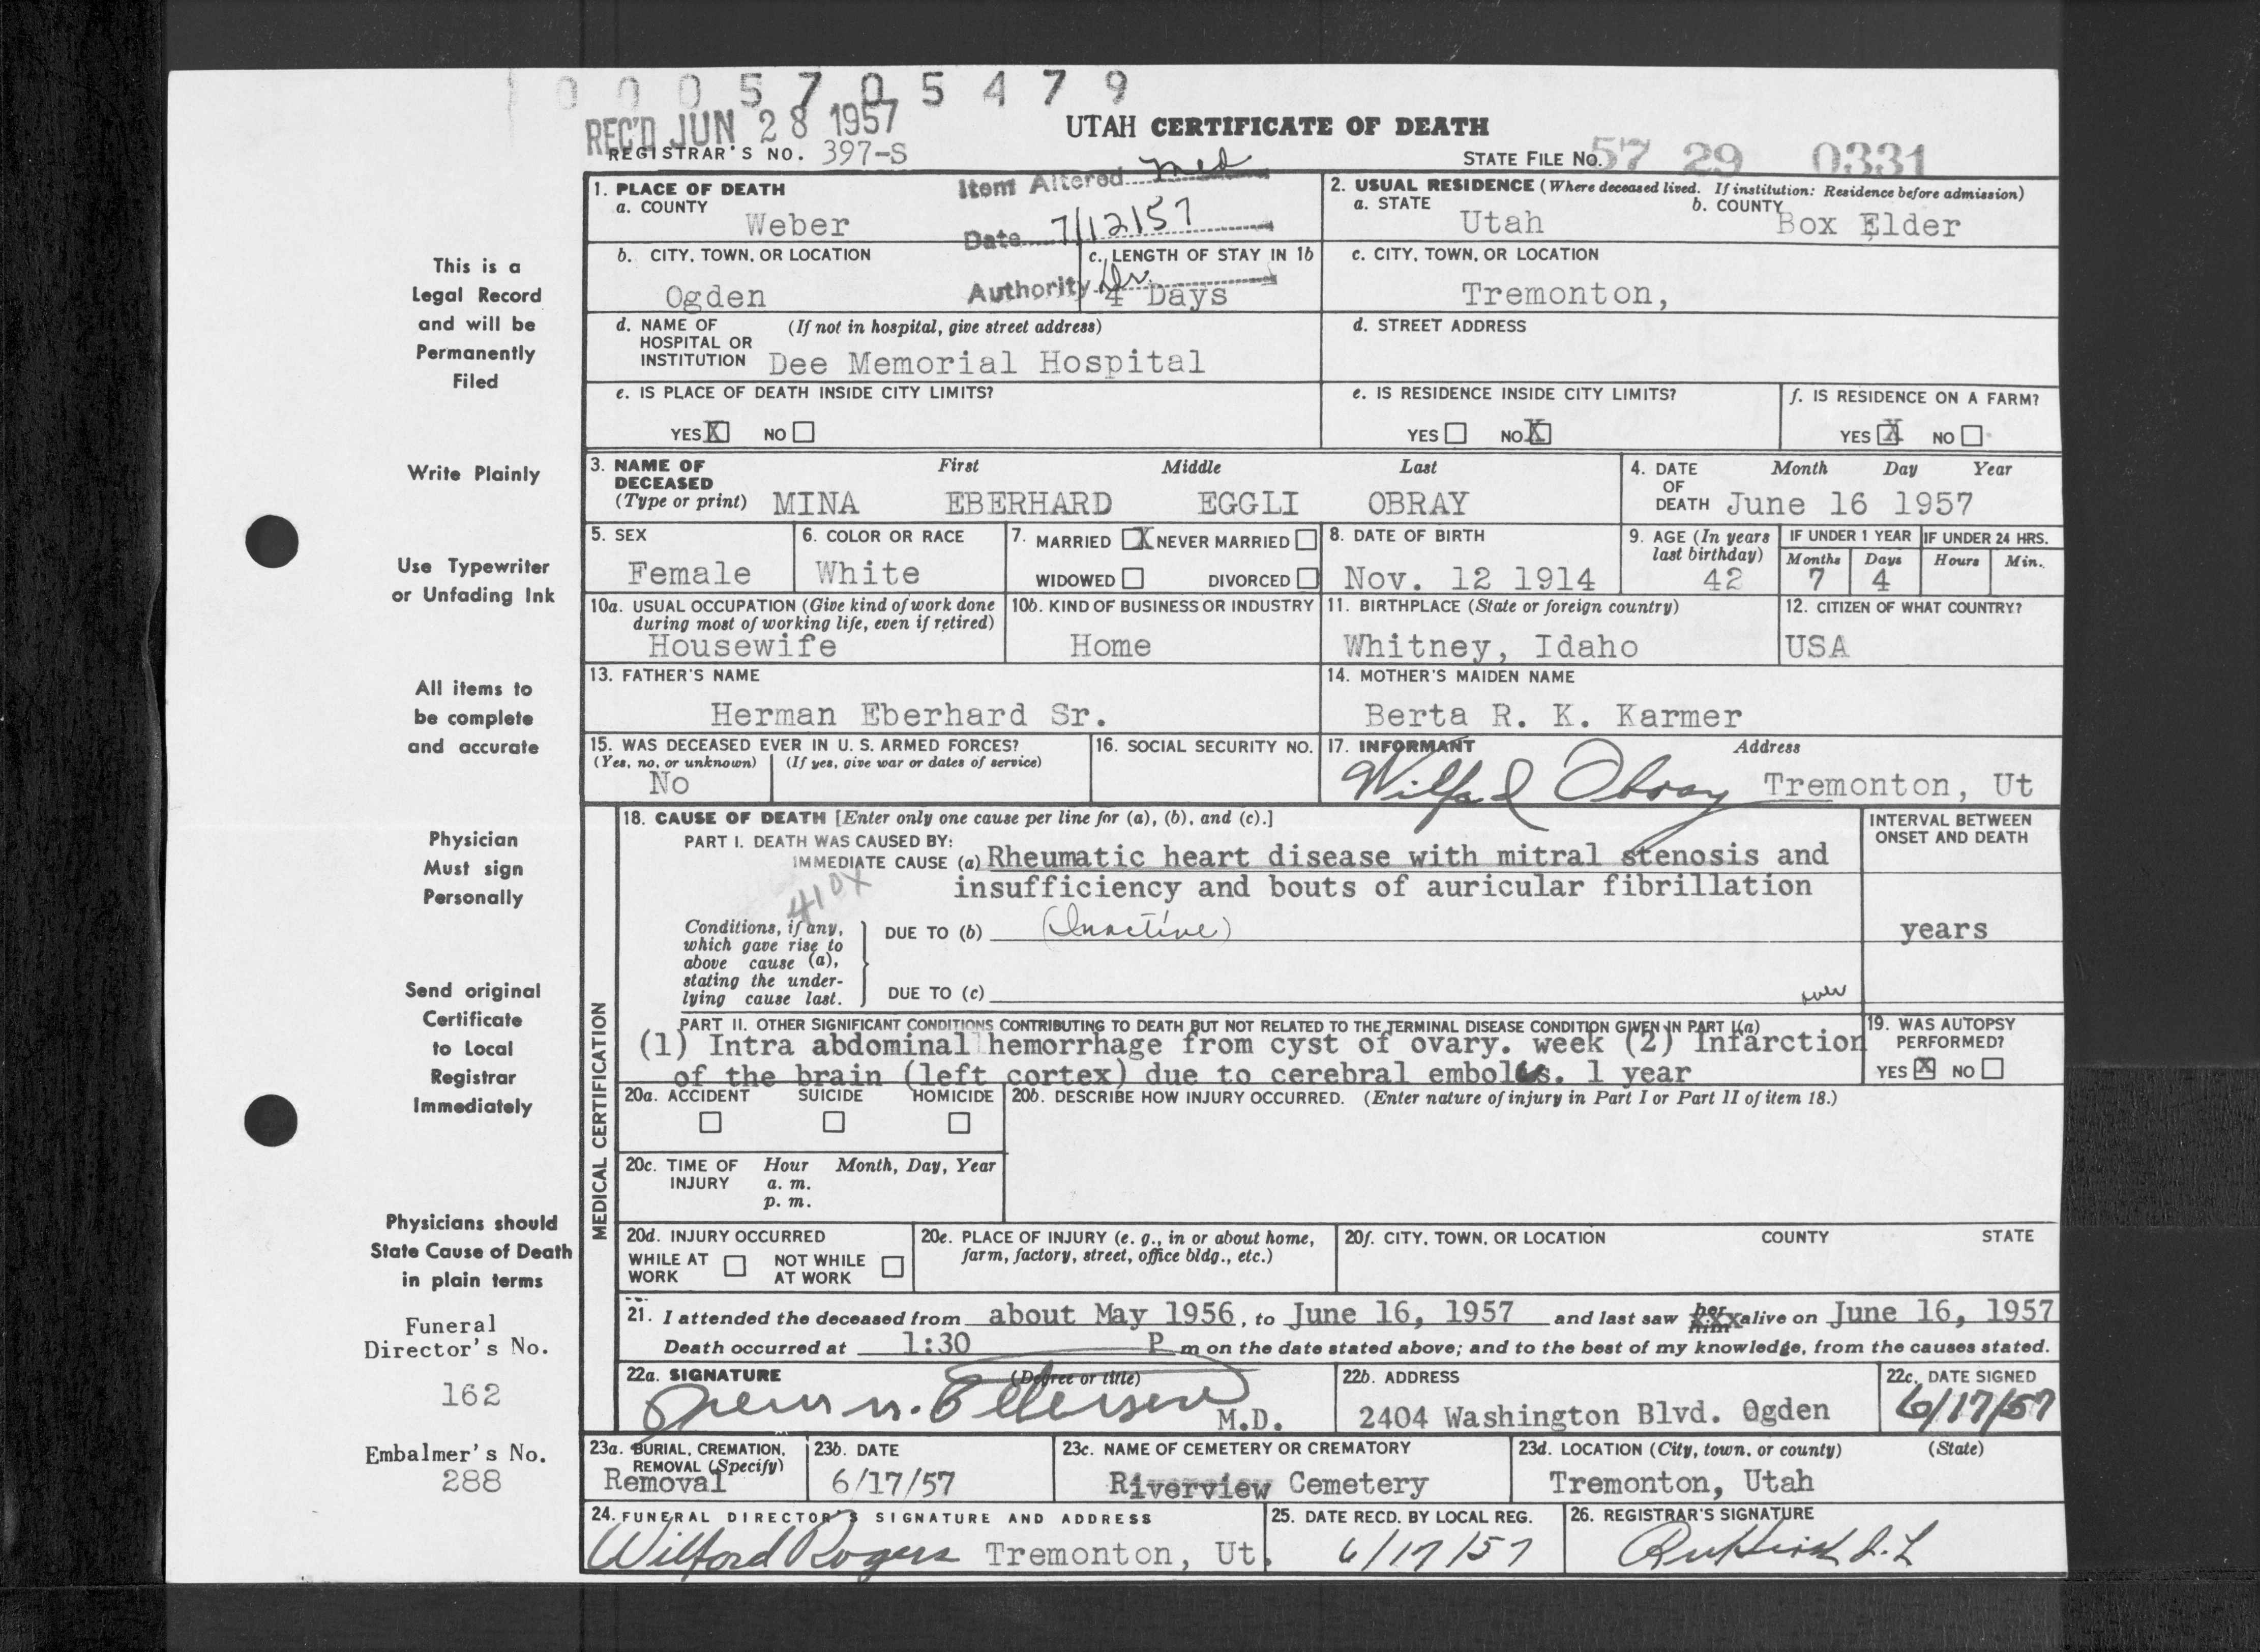 0 0 0 5 7 0 5 4 7 9
REC'D JUN 28 1957
UTAH CERTIFICATE OF DEATH
REGISTRAR'S NO. 397-S
STATE FILE NO. 57 29 0331
Item Altered med
Date 7/12/57
Authority Dr.
1. PLACE OF DEATH
a. COUNTY
Weber
2. USUAL RESIDENCE (Where deceased lived. If institution: Residence before admission)
a. STATE
Utah
b. COUNTY
Box Elder
b. CITY, TOWN, OR LOCATION
Ogden
c. LENGTH OF STAY IN 1b
4 Days
c. CITY, TOWN, OR LOCATION
Tremonton,
d. NAME OF HOSPITAL OR INSTITUTION
(If not in hospital, give street address)
Dee Memorial Hospital
d. STREET ADDRESS
e. IS PLACE OF DEATH INSIDE CITY LIMITS?
YES X NO
e. IS RESIDENCE INSIDE CITY LIMITS?
YES NO X
f. IS RESIDENCE ON A FARM?
YES X NO
3. NAME OF DECEASED
(Type or print)
First Middle Last
MINA EBERHARD EGGLI OBRAY
4. DATE OF DEATH
Month Day Year
June 16 1957
5. SEX
Female
6. COLOR OR RACE
White
7. MARRIED X NEVER MARRIED
WIDOWED DIVORCED
8. DATE OF BIRTH
Nov. 12 1914
9. AGE (In years last birthday)
42
IF UNDER 1 YEAR
Months Days
7 4
IF UNDER 24 HRS.
Hours Min.
10a. USUAL OCCUPATION (Give kind of work done during most of working life, even if retired)
Housewife
10b. KIND OF BUSINESS OR INDUSTRY
Home
11. BIRTHPLACE (State or foreign country)
Whitney, Idaho
12. CITIZEN OF WHAT COUNTRY?
USA
13. FATHER'S NAME
Herman Eberhard Sr.
14. MOTHER'S MAIDEN NAME
Berta R. K. Karmer
15. WAS DECEASED EVER IN U. S. ARMED FORCES?
(Yes, no, or unknown) (If yes, give war or dates of service)
No
16. SOCIAL SECURITY NO.
17. INFORMANT Address
Wilford Obray Tremonton, Ut
MEDICAL CERTIFICATION
18. CAUSE OF DEATH [Enter only one cause per line for (a), (b), and (c).]
PART I. DEATH WAS CAUSED BY:
IMMEDIATE CAUSE (a) Rheumatic heart disease with mitral stenosis and
insufficiency and bouts of auricular fibrillation
410X
Conditions, if any, which gave rise to above cause (a), stating the underlying cause last.
DUE TO (b) (Inactive)
DUE TO (c)
over
INTERVAL BETWEEN ONSET AND DEATH
years
PART II. OTHER SIGNIFICANT CONDITIONS CONTRIBUTING TO DEATH BUT NOT RELATED TO THE TERMINAL DISEASE CONDITION GIVEN IN PART I(a)
(1) Intra abdominal hemorrhage from cyst of ovary. week (2) Infarction
of the brain (left cortex) due to cerebral embolus. 1 year
19. WAS AUTOPSY PERFORMED?
YES X NO
20a. ACCIDENT SUICIDE HOMICIDE
20b. DESCRIBE HOW INJURY OCCURRED. (Enter nature of injury in Part I or Part II of item 18.)
20c. TIME OF INJURY
Hour Month, Day, Year
a. m.
p. m.
20d. INJURY OCCURRED
WHILE AT WORK NOT WHILE AT WORK
20e. PLACE OF INJURY (e. g., in or about home, farm, factory, street, office bldg., etc.)
20f. CITY, TOWN, OR LOCATION COUNTY STATE
21. I attended the deceased from about May 1956, to June 16, 1957 and last saw her him alive on June 16, 1957
Death occurred at 1:30 P m on the date stated above; and to the best of my knowledge, from the causes stated.
22a. SIGNATURE (Degree or title)
M.D.
22b. ADDRESS
2404 Washington Blvd. Ogden
22c. DATE SIGNED
6/17/57
23a. BURIAL, CREMATION, REMOVAL (Specify)
Removal
23b. DATE
6/17/57
23c. NAME OF CEMETERY OR CREMATORY
Riverview Cemetery
23d. LOCATION (City, town, or county) (State)
Tremonton, Utah
24. FUNERAL DIRECTOR'S SIGNATURE AND ADDRESS
Wilford Rogers Tremonton, Ut.
25. DATE RECD. BY LOCAL REG.
6/17/57
26. REGISTRAR'S SIGNATURE
This is a
Legal Record
and will be
Permanently
Filed
Write Plainly
Use Typewriter
or Unfading Ink
All items to
be complete
and accurate
Physician
Must sign
Personally
Send original
Certificate
to Local
Registrar
Immediately
Physicians should
State Cause of Death
in plain terms
Funeral
Director's No.
162
Embalmer's No.
288